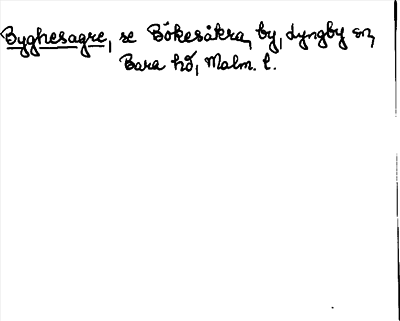 Byghesagre, se Bökesåkra, by, Lyngby sn,
Bara hd, Malm. l.